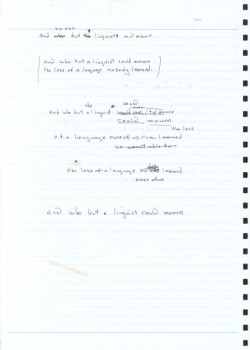 and who but the linguist will mourn
and who but a linguist could mourn
the loss of a language nobody learned.
the could
And who but a linguist
could mourn
the loss
of a language none of us ever learned
the loss of a language learned
none of us
and who but a linguist could mourn